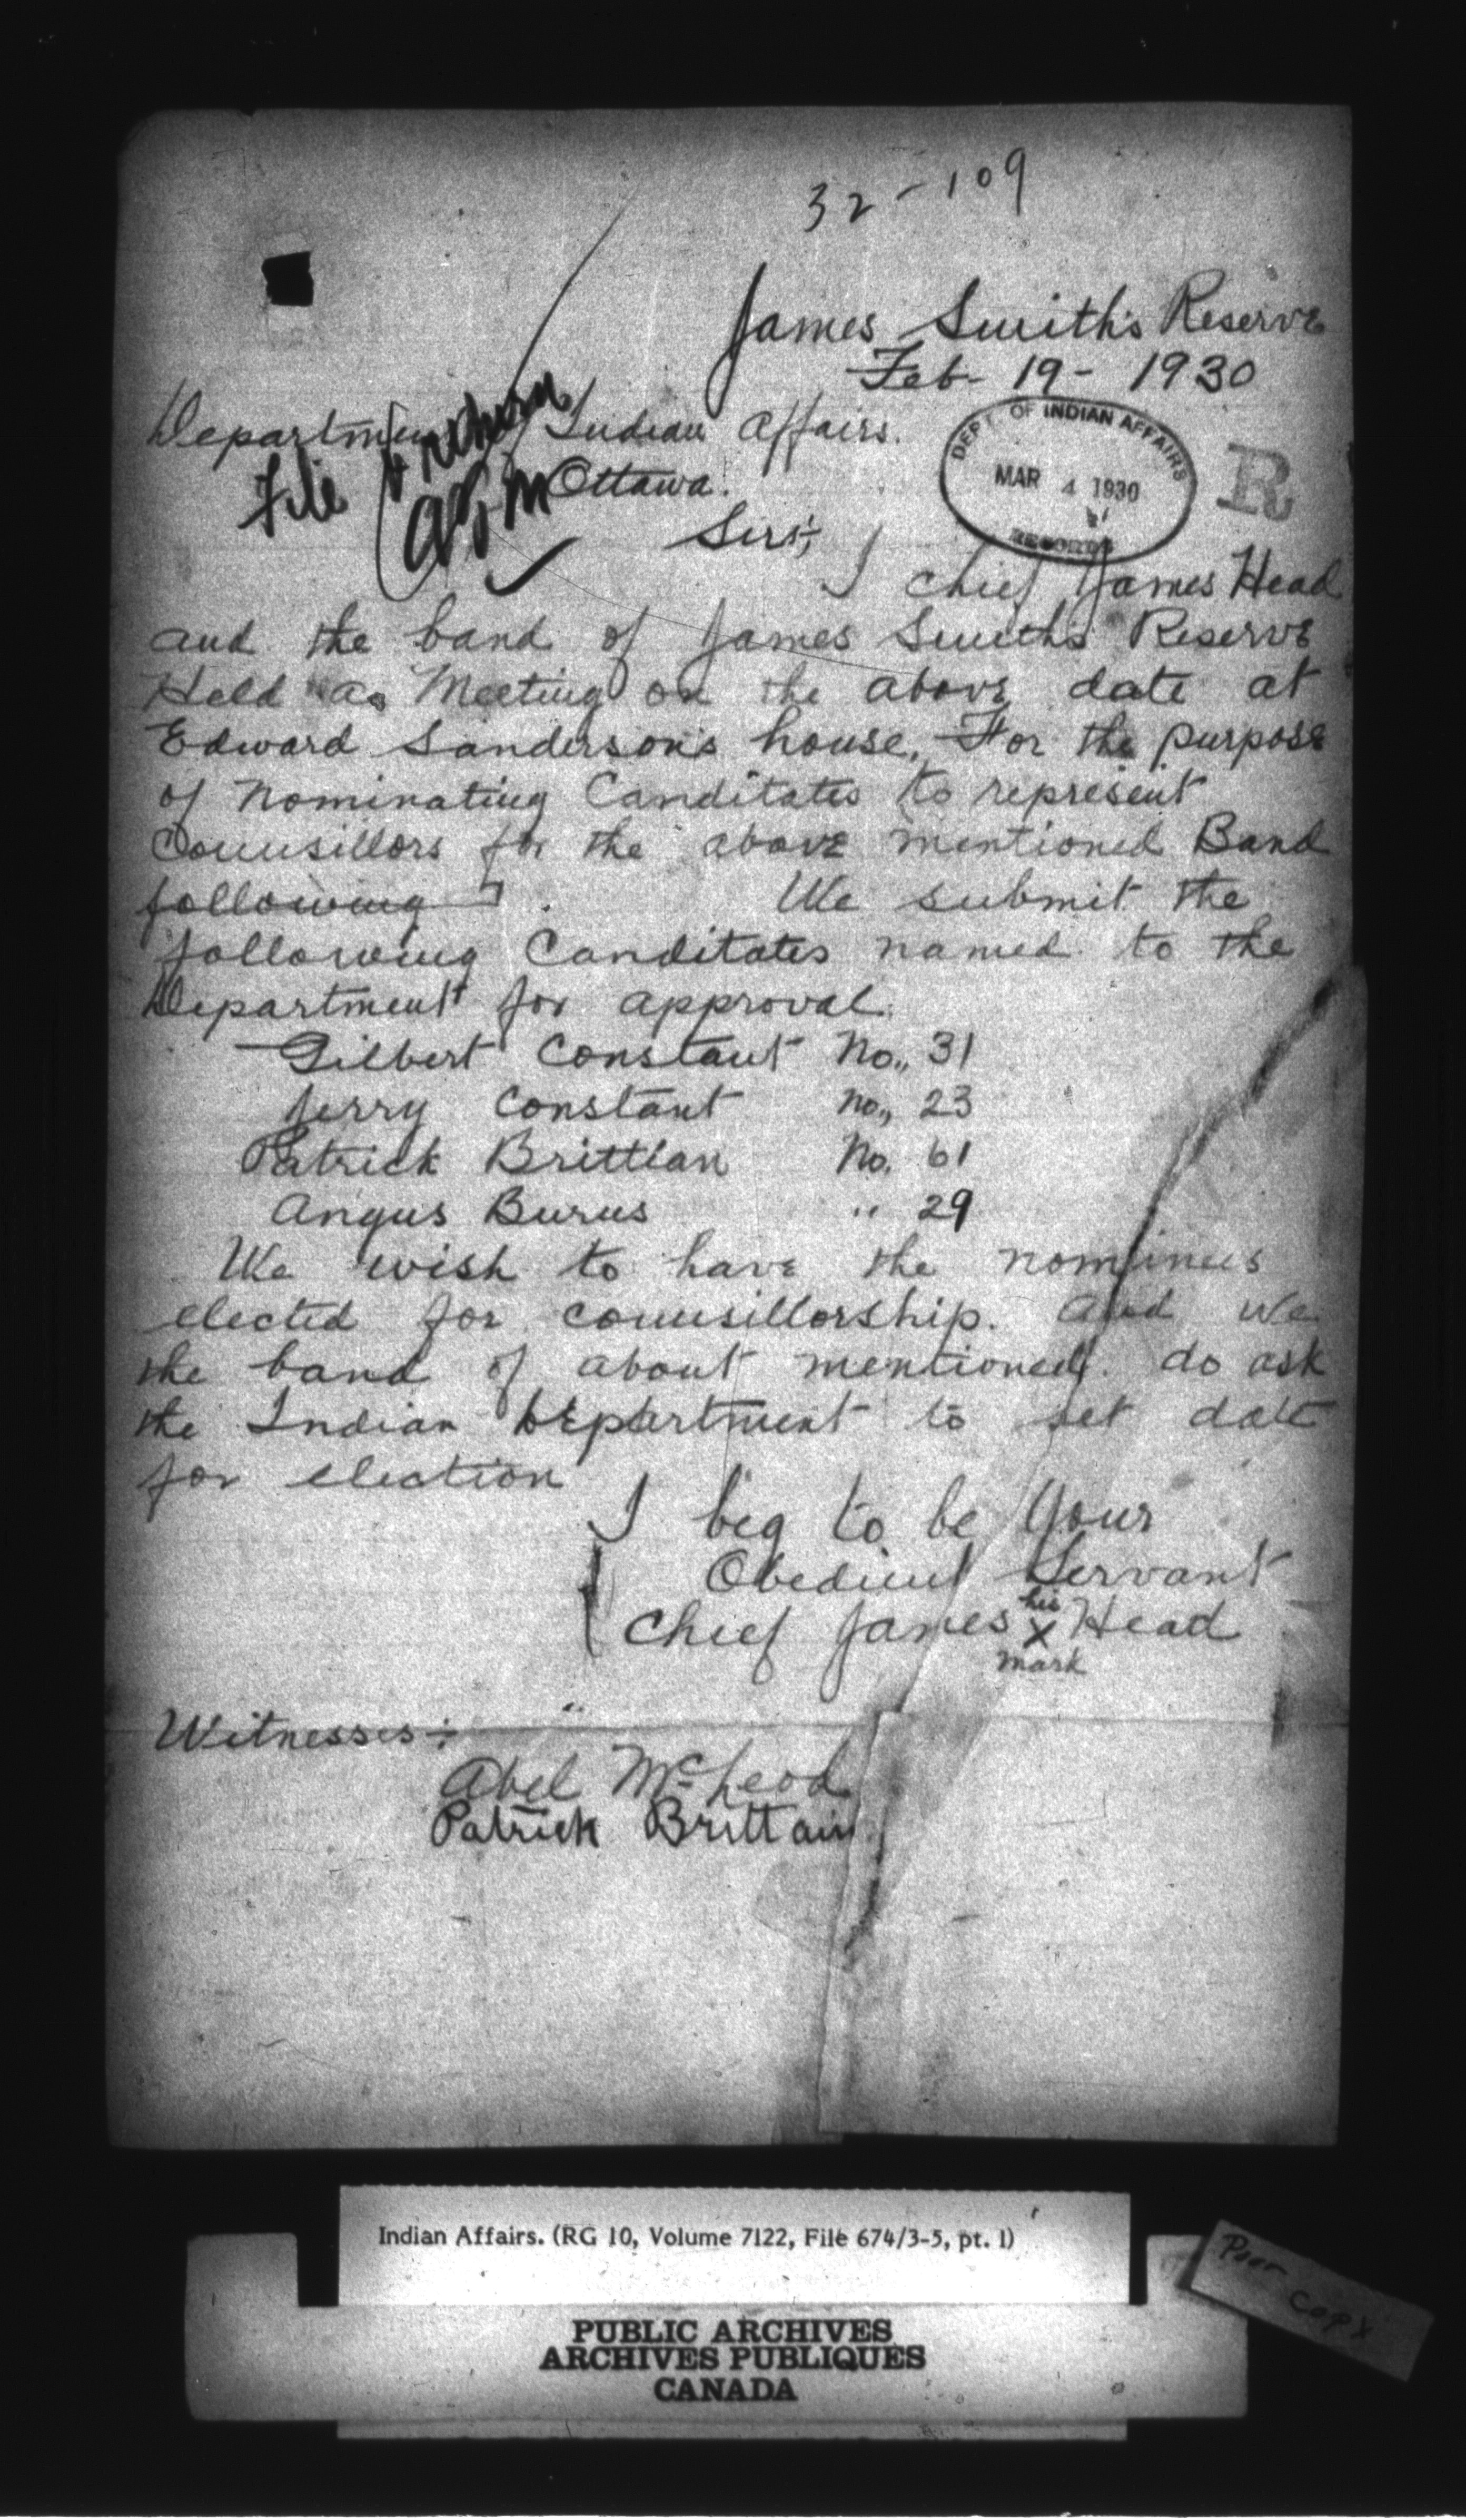 32-109
James Smith's Reserve
Feb- 19- 1930
Department of Indian Affairs.
File
Ottawa.
DEPT. OF INDIAN AFFAIRS
MAR 4 1930
RECORDS
R
Sirs;
I chief James Head
and the band of James Smith's Reserve
Held a Meeting on the above date at
Edward Sanderson's house, For the purpose
of Nominating Canditates to represent
Counsillors for the above mentioned Band
following. We submit the
following Canditates named to the
Department for approval.
Gilbert Constant No,, 31
Jerry Constant No,, 23
Patrick Brittian No. 61
Angus Burns " 29
We wish to have the nominees
elected for counsillorship. And we
the band of about mentioned. do ask
the Indian Department to set date
for election
I beg to be Your
Obedient Servant
Chief James his X mark Head
Witnesses:-
Abel McLeod
Patrick Brittain
Indian Affairs. (RG 10, Volume 7122, File 674/3-5, pt. 1)
Poor
copy
PUBLIC ARCHIVES
ARCHIVES PUBLIQUES
CANADA